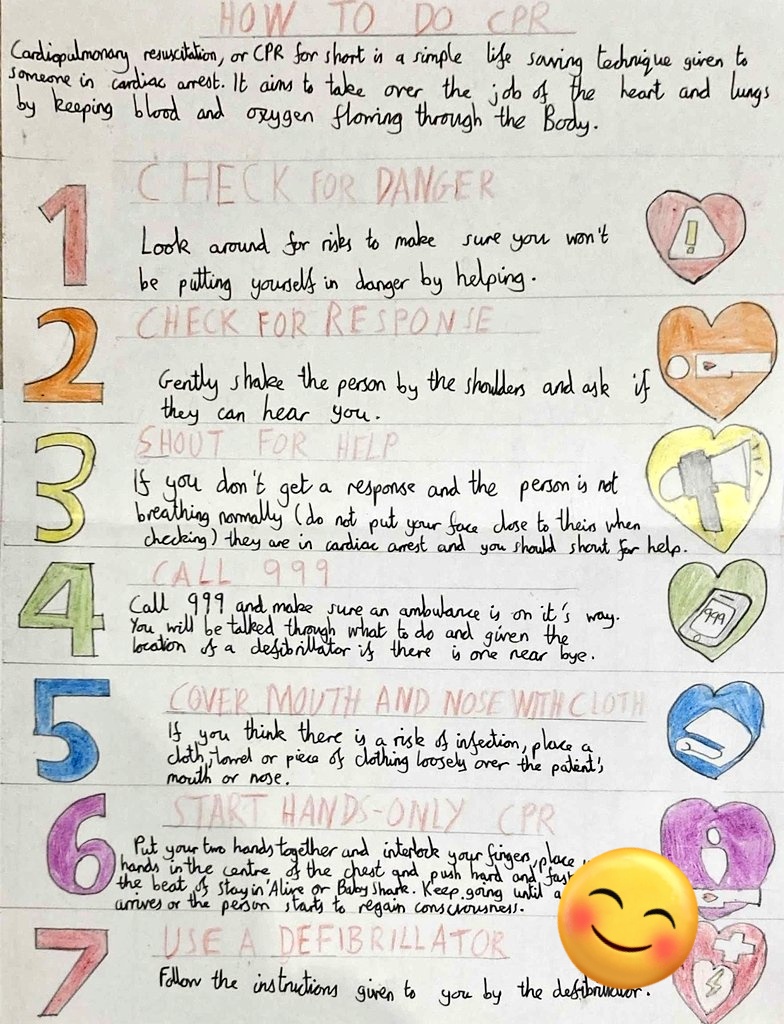 HOW TO DO CPR
Cardiopulmonary resuscitation, or CPR for short is a simple life saving technique given to
someone in cardiac arrest. It aims to take over the job of the heart and lungs
by keeping blood and oxygen flowing through the Body.
1
CHECK FOR DANGER
Look around for risks to make sure you won't
be putting yourself in danger by helping.
!
2
CHECK FOR RESPONSE
Gently shake the person by the shoulders and ask if
they can hear you.
3
SHOUT FOR HELP
If you don't get a response and the person is not
breathing normally (do not put your face close to theirs when
checking) they are in cardiac arrest and you should shout for help.
4
CALL 999
Call 999 and make sure an ambulance is on it's way.
You will be talked through what to do and given the
location of a defibrillator if there is one near bye.
999
5
COVER MOUTH AND NOSE WITH CLOTH
If you think there is a risk of infection, place a
cloth, towel or piece of clothing loosely over the patient's
mouth or nose.
6
START HANDS-ONLY CPR
Put your two hands together and interlock your fingers, place
hands in the centre of the chest and push hard and fast
the beat of Stayin' Alive or Baby Shark. Keep going until
arrives or the person starts to regain consciousness.
7
USE A DEFIBRILLATOR
Follow the instructions given to you by the defibrillator.